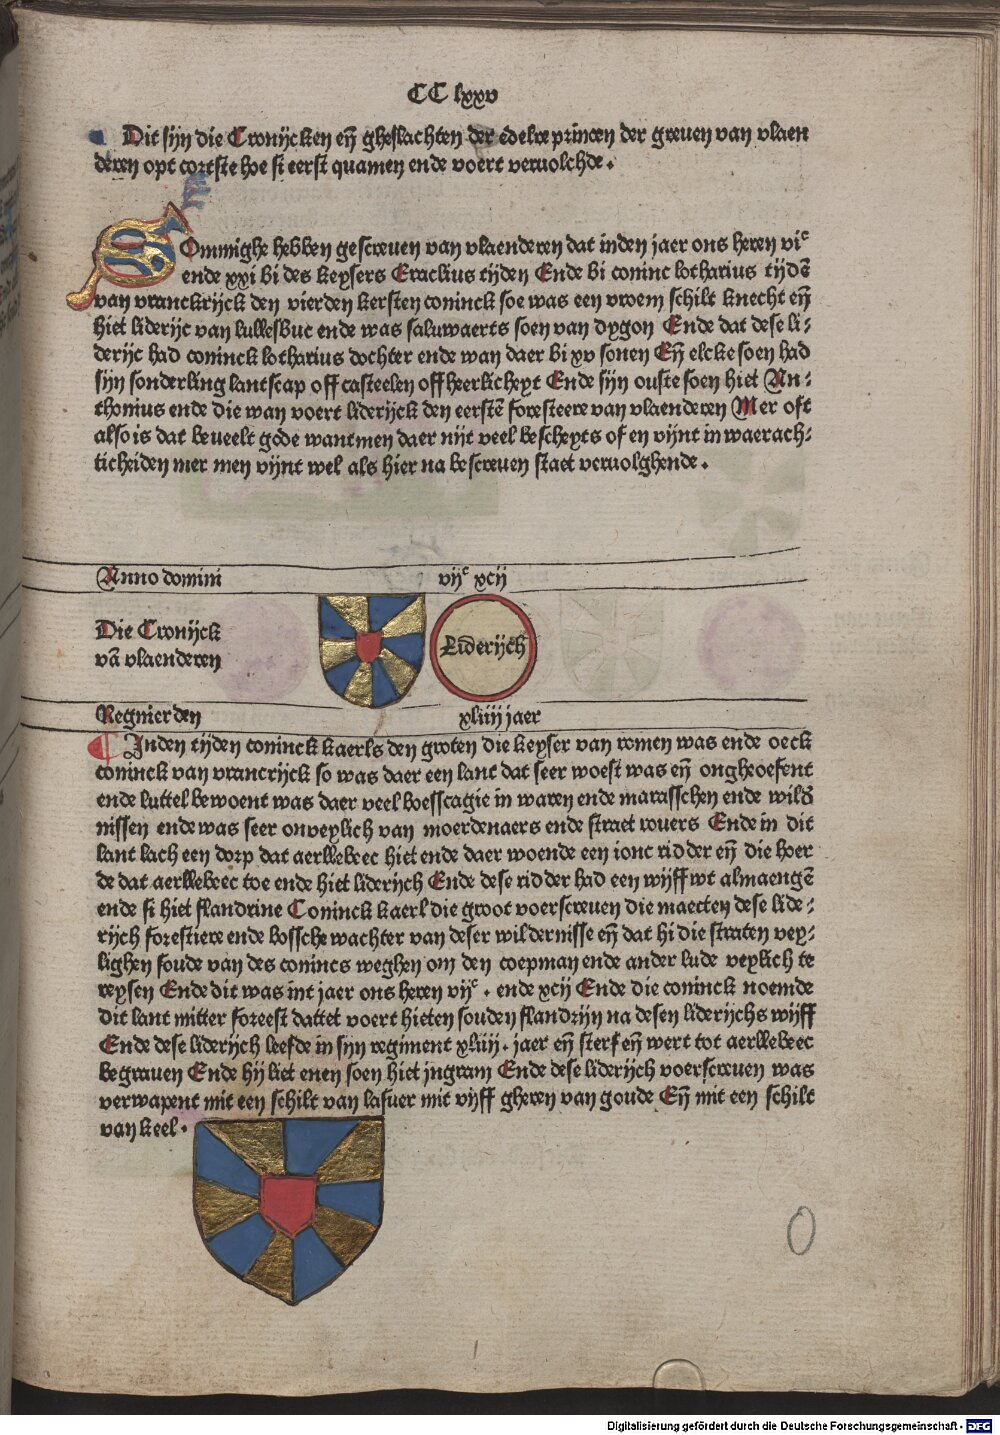 CC lxxv
Dit sijn die Cronijcken eñ gheslachten der edelre princen der greuen van vlaen
deren opt cortste hoe si eerst quamen ende voert veruolchde.
SOmmighe hebben gescreuen van vlaenderen dat inden jaer ons heren viᶜ
ende xxi bi des keysers Eraclius tijden Ende bi coninc lotharius tijdē
van vranckrijck den vierden kersten coninck soe was een vroem schilt knecht eñ
hiet liderijc van lullesbuc ende was saluwaerts soen van dygon Ende dat dese li⸗
derijc had coninck lotharius dochter ende wan daer bi xv sonen Eñ elcke soen had
sijn sonderling lantscap off casteelen off heerlicheyt Ende sijn ouste soen hiet An⸗
thonius ende die wan voert liderijck den eerstē foresteere van vlaenderen Mer oft
also is dat beueelt gode want men daer nijt veel bescheyts of en vijnt in waerach⸗
ticheiden mer men vijnt wel als hier na bescreuen staet veruolghende.
Anno domini vijᶜ xcij
Die Cronijck
vā vlaenderen
Liderijch
Regnier den xliiij jaer
¶ Inden tijden coninck kaerls den groten die keyser van romen was ende oeck
coninck van vrancrijck so was daer een lant dat seer woest was eñ ongheoefent
ende luttel bewoent was daer veel boesscagie in waren ende marasschen ende wild̄
nissen ende was seer onveylich van moerdenaers ende straet rouers Ende in dit
lant lach een dorp dat aerllebeec hiet ende daer woende een ionc ridder eñ die hoer
de dat aerllebeec toe ende hiet liderijch Ende dese ridder had een wijff wt almaengē
ende si hiet flandrine Coninck kaerl die groot voerscreuen die maecten dese lide⸗
rijch forestiere ende bossche wachter van deser wildernisse eñ dat hi die straten vey⸗
lighen soude van des conincs weghen om den coepman ende ander lude veylich te
reysen Ende dit was int jaer ons heren vijᶜ. ende xcij Ende die coninck noemde
dit lant mitter foreest dattet voert hieten souden flandrijn na desen liderijchs wijff
Ende dese liderijch leefde in sijn regiment xliiij. jaer eñ sterf eñ wert tot aerllebeec
begrauen Ende hij liet enen soen hiet jngram Ende dese liderijch voerscreuen was
verwapent mit een schilt van lasuer mit vijff gheren van goude Eñ mit een schilt
van keel.
Digitalisierung gefördert durch die Deutsche Forschungsgemeinschaft - DFG